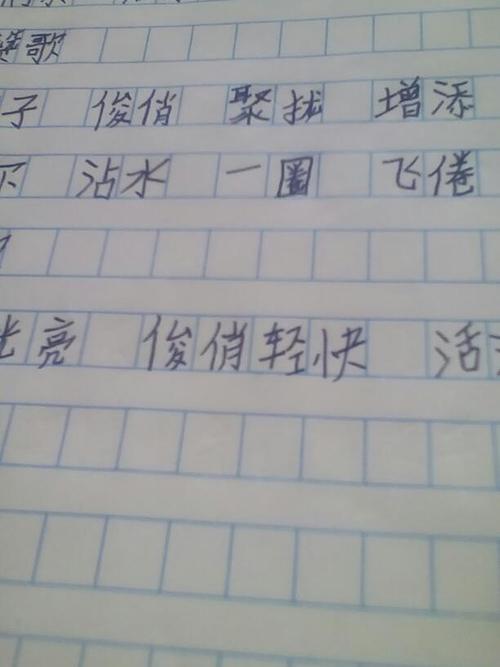 歌
子 俊俏 聚拢 增添
沾水 一圈 飞倦
光亮 俊俏轻快 活